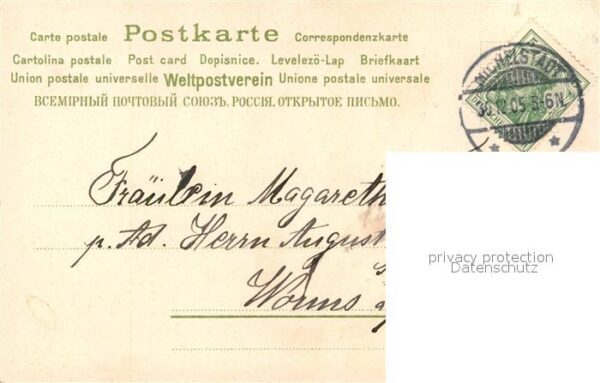 Carte postale Postkarte Correspondenzkarte
Cartolina postale Post card Dopisnice. Levelezö-Lap Briefkaart
Union postale universelle Weltpostverein Unione postale universale
ВСЕМІРНЫЙ ПОЧТОВЫЙ СОЮЗЪ. РОССІЯ. ОТКРЫТОЕ ПИСЬМО.
MICHELSTADT
12.05 5-6N
Fräulein Magareth
p. Ad. Herrn August
Worms a/
privacy protection
Datenschutz